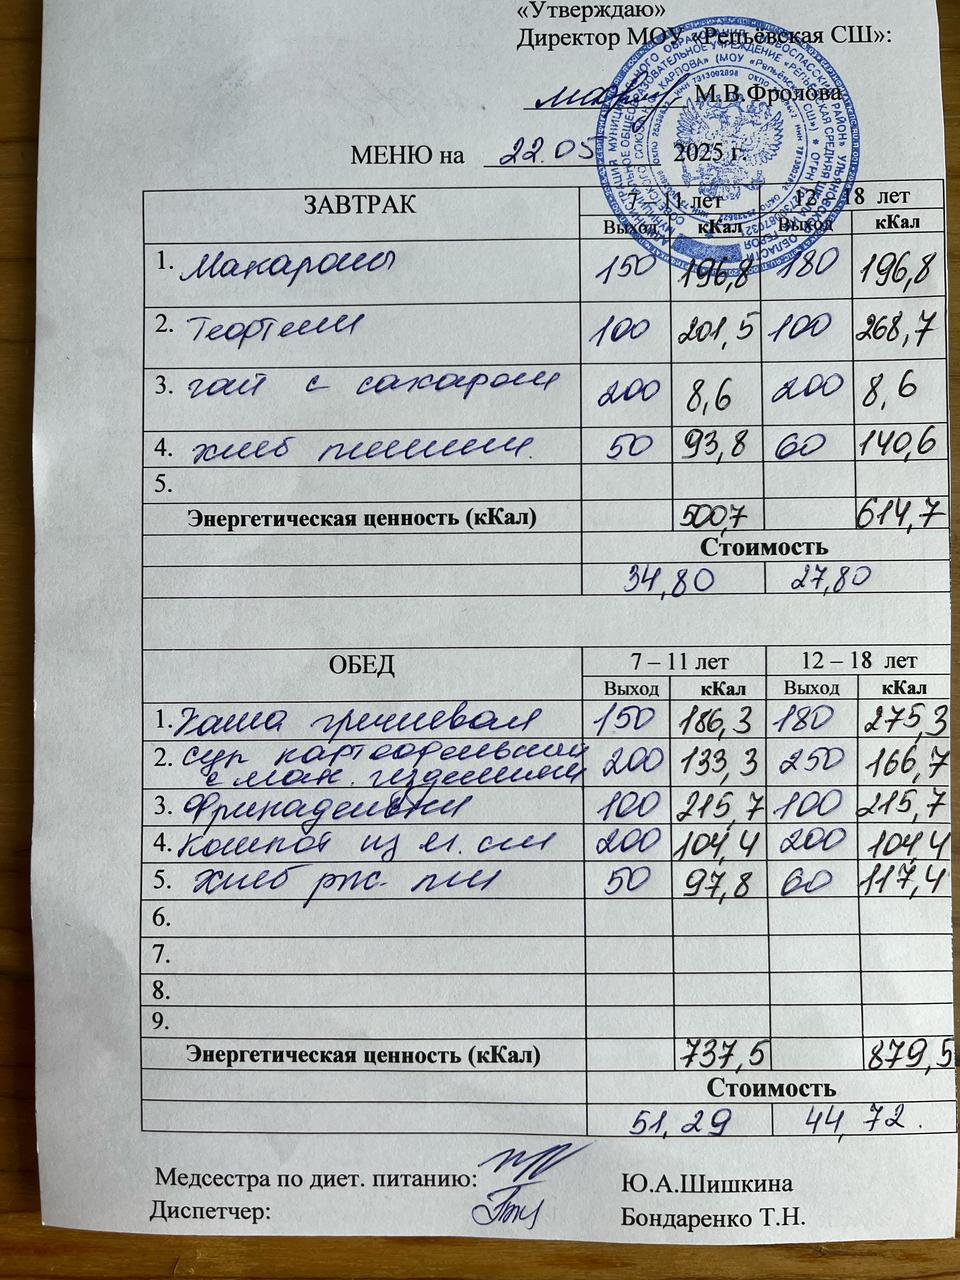 «Утверждаю»
Директор МОУ «Репьёвская СШ»:
М.В.Фролова
МЕНЮ на 22.05 2025 г.
ЗАВТРАК 7 11 лет 12 18 лет
Выход кКал Выход кКал
1. Макароны 150 196,8 180 196,8
2. Тефтели 100 201,5 100 268,7
3. чай с сахаром 200 8,6 200 8,6
4. хлеб пшенич. 50 93,8 60 140,6
5.
Энергетическая ценность (кКал) 500,7 614,7
Стоимость
34,80 27,80
ОБЕД 7 – 11 лет 12 – 18 лет
Выход кКал Выход кКал
1. Каша гречневая 150 186,3 180 275,3
2. Суп картофельный 200 133,3 250 166,7
с мак. изделиями
3. Фрикадельки 100 215,7 100 215,7
4. Компот из 200 104,4 200 104,4
5. Хлеб рж. пш 50 97,8 60 117,4
6.
7.
8.
9.
Энергетическая ценность (кКал) 737,5 879,5
Стоимость
51,29 44,72.
Медсестра по диет. питанию: Ю.А.Шишкина
Диспетчер: Бондаренко Т.Н.